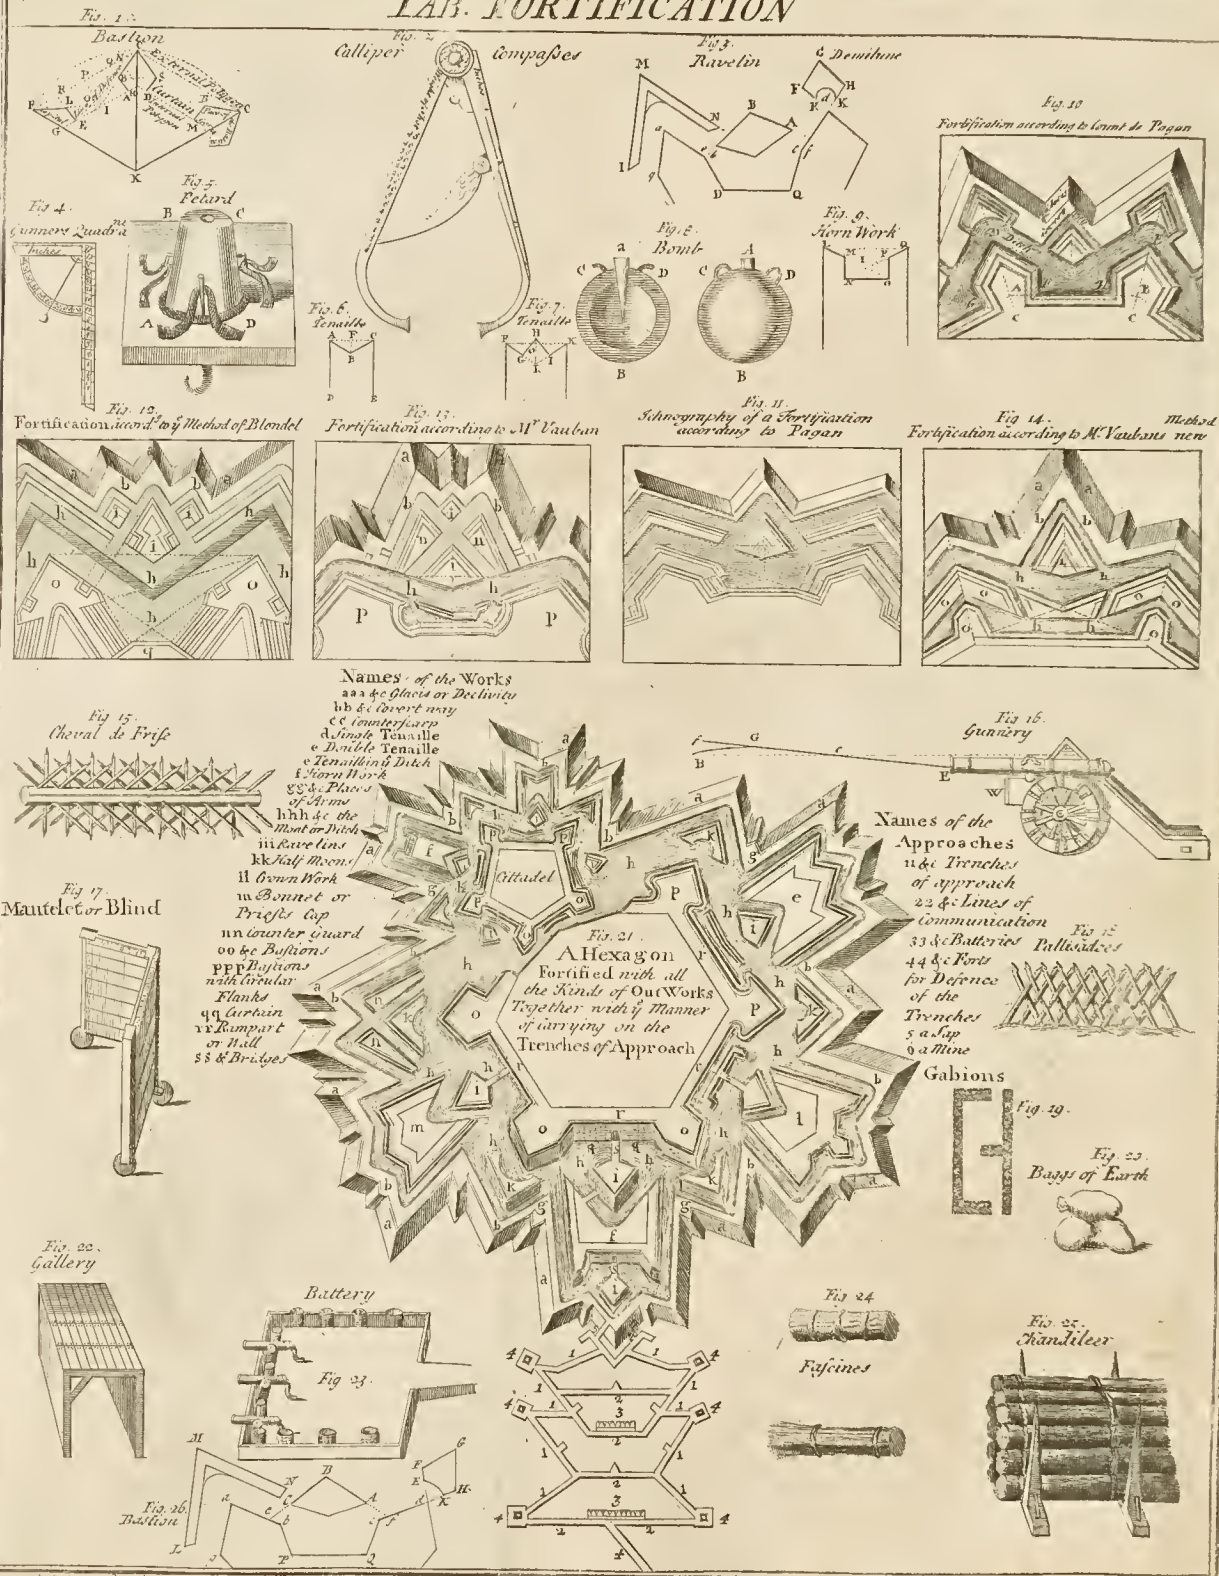 TAB. FORTIFICATION
Fig. 1.
Bastion
External Polygon
Curtain
Fig. 2
Calliper Compasses
Inches
Fig. 3.
Ravelin
Demilune
Fig. 4
Gunners Quadrant
Inches
Fig. 5.
Petard
Fig. 6.
Tenaille
Fig. 7.
Tenaille
Fig. 8.
Bomb
Fig. 9.
Horn Work
Fig. 10
Fortification according to Count de Pagan
Ditch
Fig. 12.
Fortification accordg. to ye Method of Blondel
Fig. 13.
Fortification according to Mr Vauban
Fig. 11.
Ichnography of a Fortification
according to Pagan
Fig 14.
Fortification according to Mr. Vaubans new Method
Fig 15.
Cheval de Frise
Names of the Works
aaa &c Glacis or Declivity
bb &c Covert way
cc Counterscarp
d Single Tenaille
e Double Tenaille
e Tenaille in ye Ditch
f Horn Work
gg &c Places
of Arms
hhh &c the
Moat or Ditch
iii Ravelins
kk Half Moons
ll Crown Work
m Bonnet or
Priests Cap
nn Counter guard
oo &c Bastions
ppp Bastions
with Circular
Flanks
qq Curtain
rr Rampart
or Wall
ss &c Bridges
Fig 16.
Gunnery
Names of the
Approaches
11 &c Trenches
of approach
22 &c Lines of
Communication
33 &c Batteries
44 &c Forts
for Defence
of the
Trenches
5 a Sap
6 a Mine
Fig 17
Mantelet or Blind
Fig 18
Pallisadoes
Cittadel
Fig. 21.
A Hexagon
Fortified with all
the Kinds of Out Works
Together with ye Manner
of carrying on the
Trenches of Approach
Gabions
Fig. 19.
Fig. 20.
Baggs of Earth
Fig. 22.
Gallery
Battery
Fig 23.
Fig 24
Fascines
Fig. 25.
Chandileer
Fig. 26.
Bastion